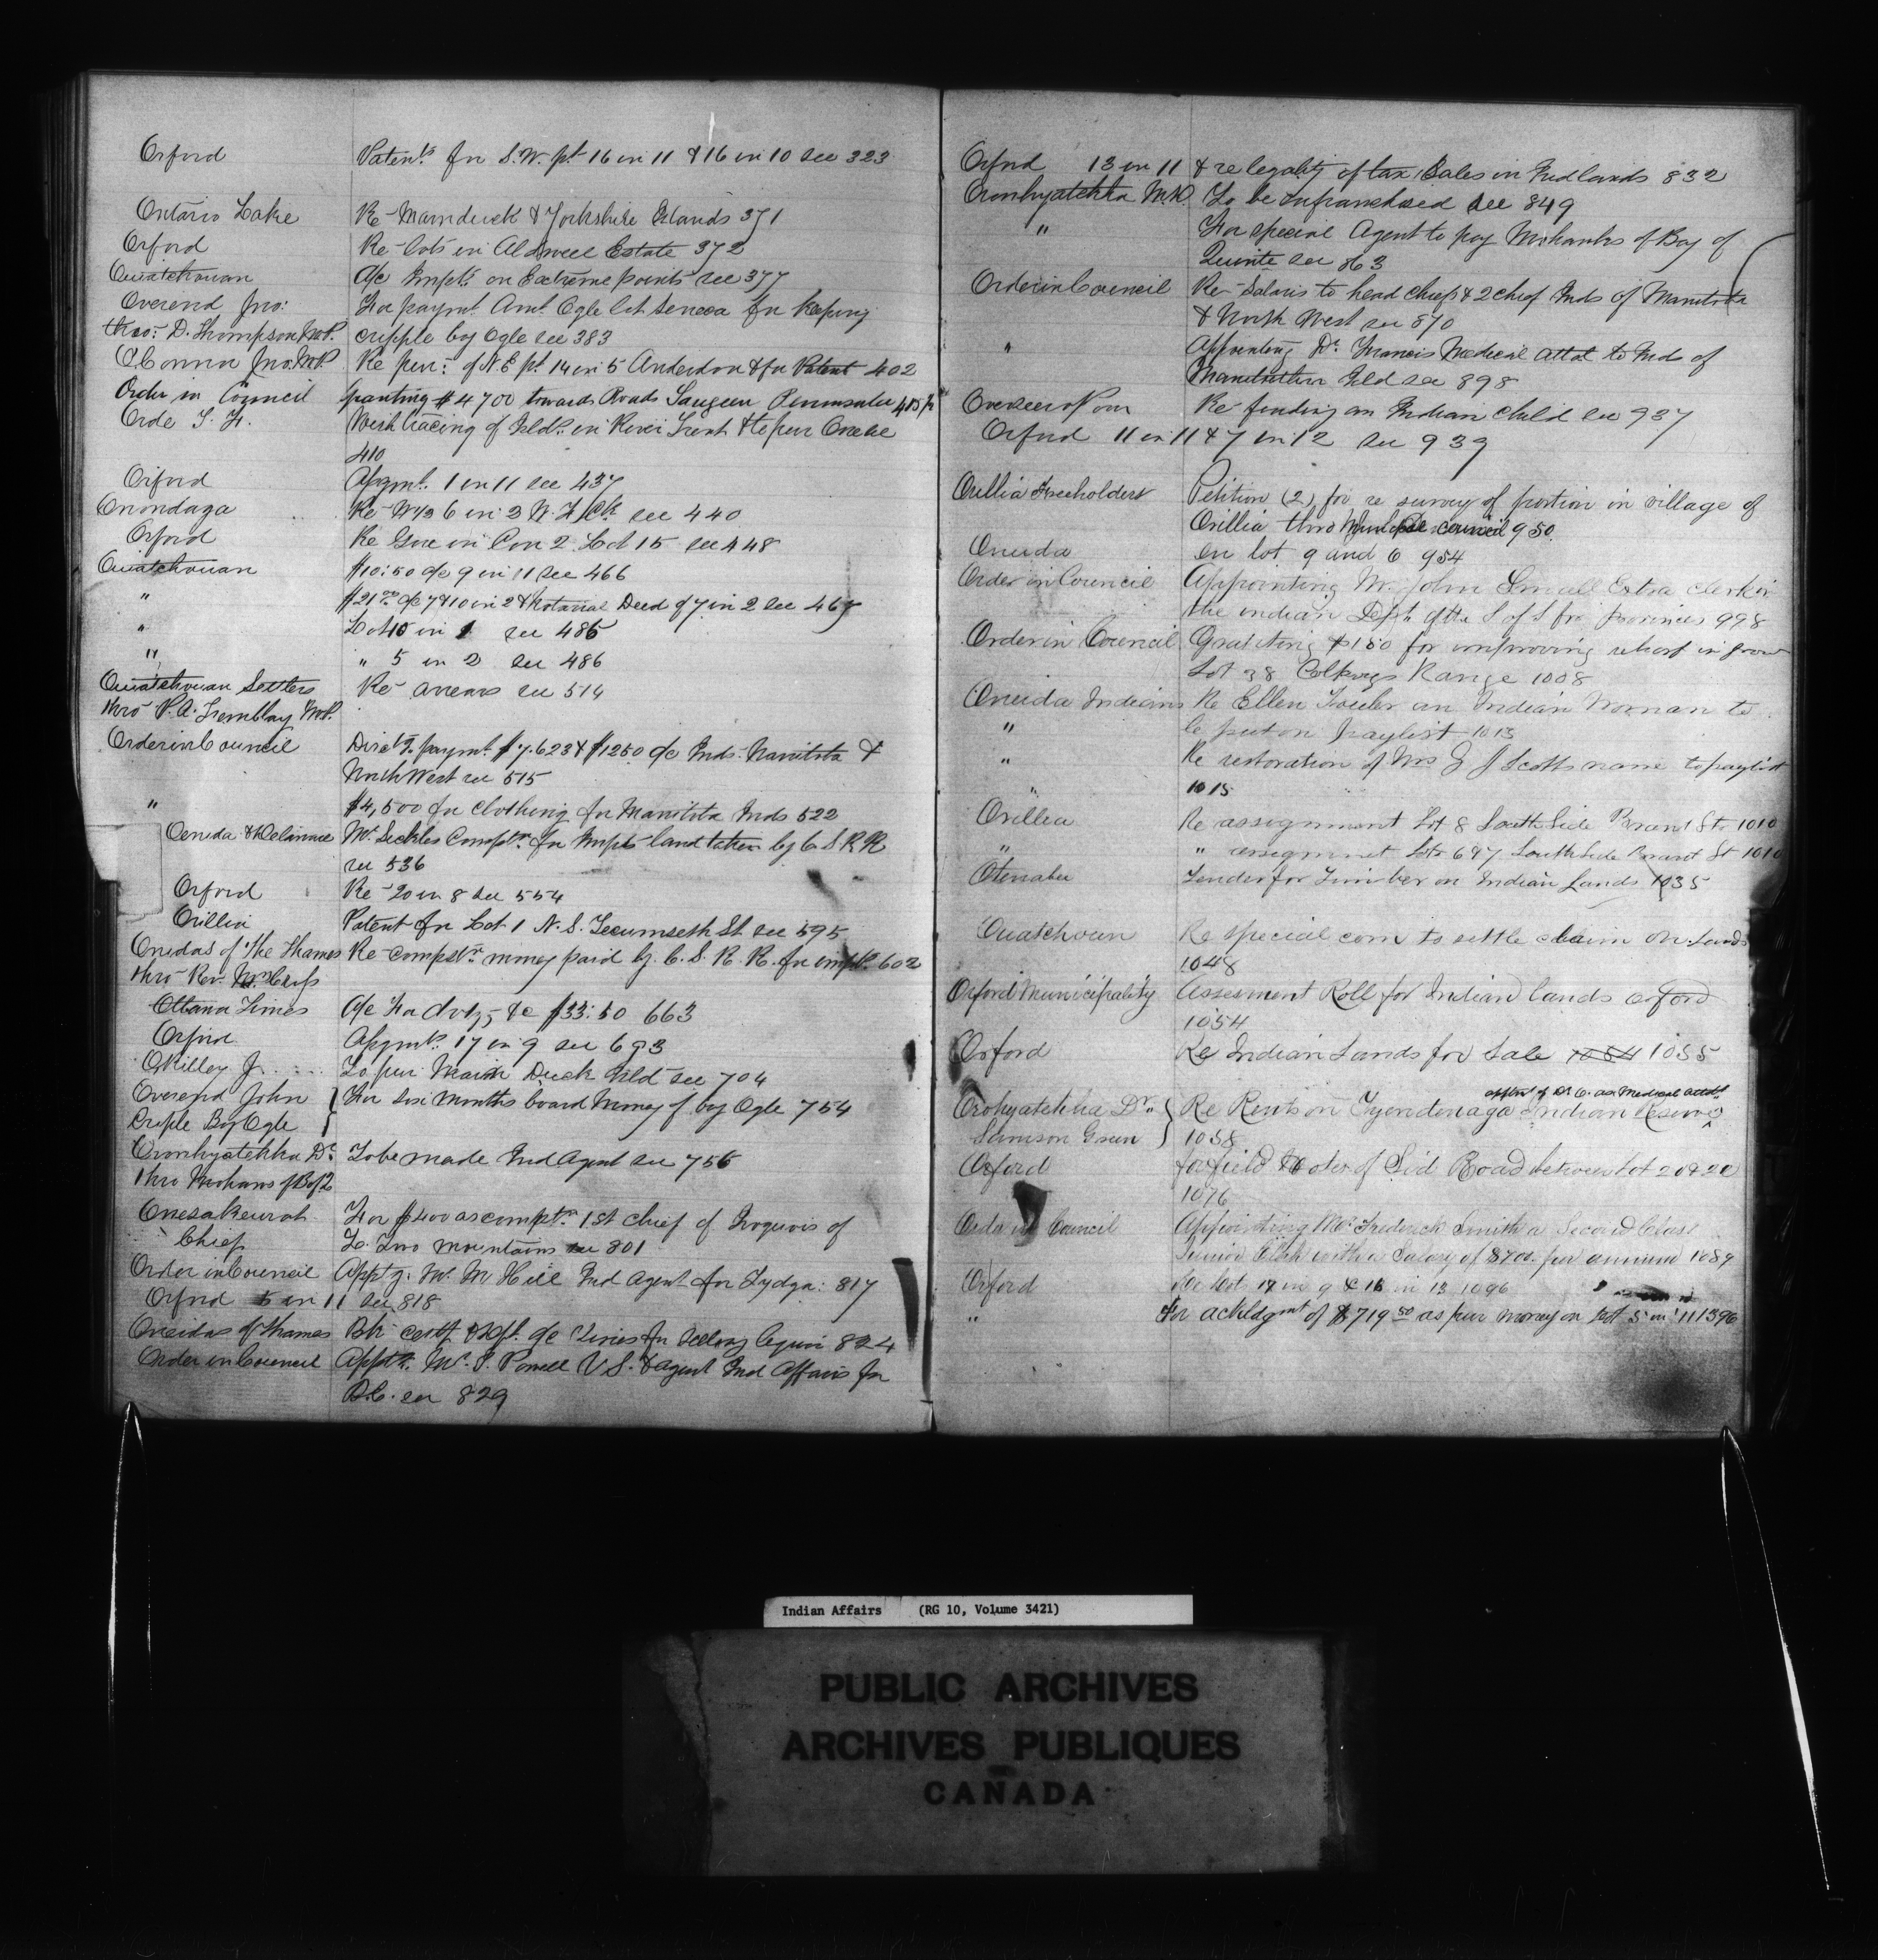 Orford Patents for S.W. pt 16 in 11 & 16 in 10 see 323
Ontario Lake Re- Main duck & Yorkshire Islands 371
Orford Re- lots in Aldwell Estate 372
Ouiatchouan a/c Impts on Extreme points see 377
Overend Jno: For paymt Amt Ogle lot Seneca for keeping
thro: D. Thompson M.P. cripple boy Ogle see 383
O'Connor Jno. M.P. Re pur: of N.E pt 14 in 5 Anderdon & for Patent 402
Order in Council granting $4700 towards Roads Saugeen Peninsula
Orde T. H. Wish tracing of Islds in River Trent & to pur
410
Orford Asgmt. 1 in 11 see 437
Onondaga Re- N½ 6 in 3 see 440
Orford Re Gore in Con 2. Lot 15 see 448
Ouiatchouan $10:50 a/c 9 in 11 see 466
" $21.00 a/c 7 & 10 in 2 & Notarial Deed of 7 in 2 see 467
" Lot 10 in 1 see 485
" " 5 in 2 see 486
Ouiatchouan Settlers Re- arrears see 514
thro- P.A. Tremblay M.P.
Order in Council Directg. paymt. $7.623 & $1250 a/c Inds. Manitoba &
North West see 515
" $4,500 for clothing for Manitoba Inds 522
Oneida & Delaware Mr. Sickles Compstn. for Impts land taken by C S R R
see 536
Orford Re- 20 in 8 see 554
Orillia Patent for Lot 1 N.S. Tecumseth St. see 595
Oneidas of the Thames Re- compstn. money paid by C.S.R.R. for impts. 602
thro- Rev.
Ottawa Times a/c For Advtg, &c $33:50 663
Orford Asgmts. 17 in 9 see 693
OKilley J. To pur Main Duck Isld see 704
Overend John } For Six months board money of boy Ogle 754
Criple Boy Ogle
Oronhyatekha Dr. To be made Ind Agent see 756
thro Mohawks of B of Q
Onesakeurat For $400 as compstn. 1st chief of Iroquois of
Chief L. Two Mountains see 801
Order in Council Apptg. Mr. M Hill Ind Agent for Tydga: 817
Orford 5 in 11 see 818
Oneidas of Thames 824
Order in Council Apptg. Mr. I. Powell V S. & agent Ind Affairs for
B.C. see 829
Orford 13 in 11 & re legality of tax Sales in Ind lands 832
Oronhyatekha M.D. To be enfranchised see 849
" For special Agent to pay Mohawks of Bay of
Quinte see 863
Order in Council Re- Salaries to head chiefs & 2 chief Inds of Manitoba
& North West see 870
" Appointing Dr. Francis Medical attdt to Inds of
Manitoulin Isld see 898
Overseer of Poor Re- finding an Indian child see 937
Orford 11 in 11 & 7 in 12 see 939
Orillia Freeholders Petition (2) for re survey of portion in village of
Orillia thro Municipal council 950
Oneida on lot 9 and 6 954
Order in Council Appointing Mr. John Small Extra clerk in
the indian Dept of the S of S for provinces 998
Order in Council Granting $150 for improving wharf in front
Lot 38 Range 1008
Oneida Indians Re Ellen an Indian Woman to
" be put on paylist 1013
" Re restoration of Mrs J J Scotts name to paylist
" 1015
Orillia Re assignment Lot 8 South Side Brant St 1010
" " assignmet Lots 6 & 7 South Side Brant St 1010
Otonabee Tender for Timber on Indian Lands 1035
Ouatchoun Re special com to settle claim on Lands
1048
Orford Municipality Assesment Roll for Indian lands Orford
1054
Orford Re Indian Lands for Sale 1054 1055
appmt of Dr O. as Medical attdt
Orohyatekha Dr. } Re Rents on Tyendenaga Indian Reserve
Samson Green 1058
Orford for field Notes of Sid Road between Lot 20 & 21
1076
Order in Council Appointing Mr. Frederick Smith a Second Class
Junior Clerk with a Salary of $700. per annum 1089
Orford Re lot 17 in 9 & 16 in 13 1096
" For ackldgmt of $719 50 as pur money on lot 5 in 11 1396
Indian Affairs (RG 10, Volume 3421)
PUBLIC ARCHIVES
ARCHIVES PUBLIQUES
CANADA